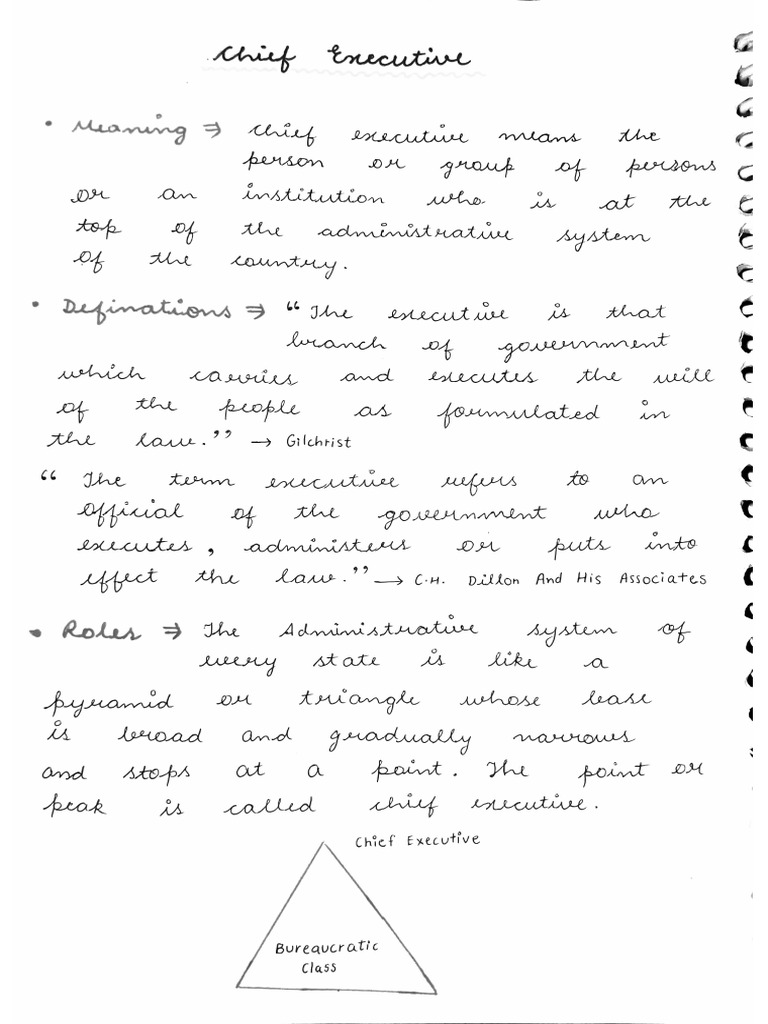 Chief Executive
• Meaning ⇒ Chief executive means the
person or group of persons
or an institution who is at the
top of the administrative system
of the country.
• Definations ⇒ “The executive is that
branch of government
which carries and executes the will
of the people as formulated in
the law.” → Gilchrist
“The term executive refers to an
official of the government who
executes, administers or puts into
effect the law.” → C.H. Dillon And His Associates
• Roles ⇒ The Administrative system of
every state is like a
pyramid or triangle whose base
is broad and gradually narrows
and stops at a point. The point or
peak is called chief executive.
Chief Executive
Bureaucratic
Class